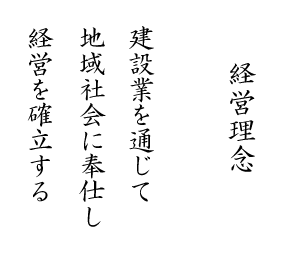 経営理念
建設業を通じて
地域社会に奉仕し
経営を確立する